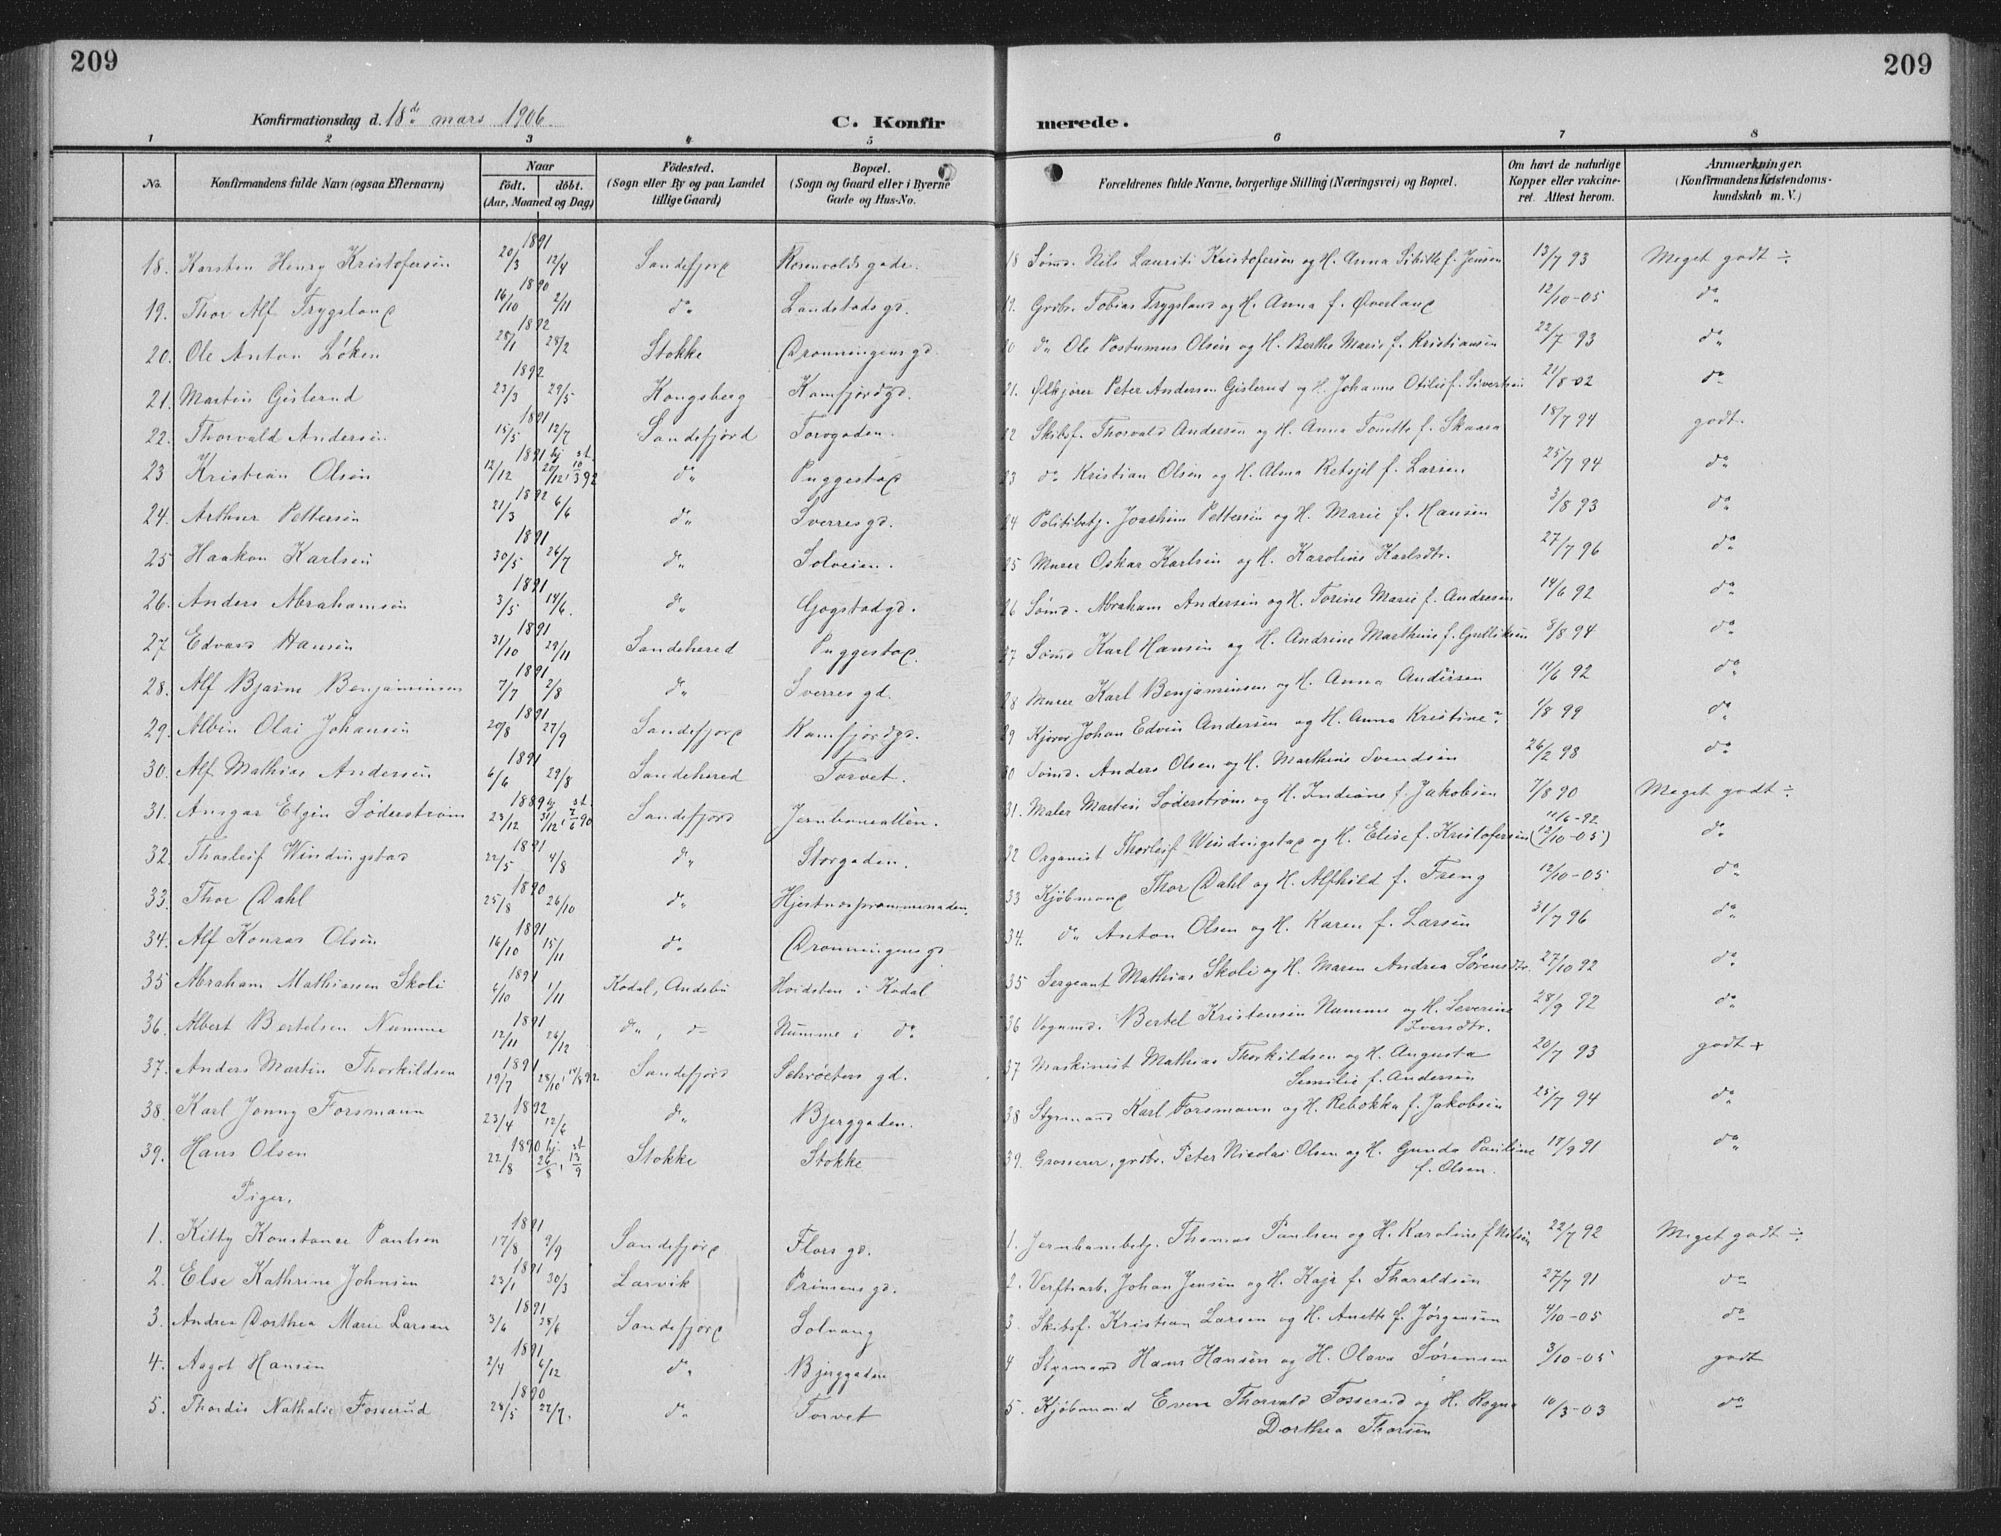 209
209
Konfirmationsdag d. 18de mars 1906.
C. Konfirmerede.
1 2 3 4 5 6 7 8
No. Konfirmandens fulde Navn (ogsaa Efternavn) Naar født. døbt. (Aar, Maaned og Dag) Födested. (Sogn eller By og paa Landet tillige Gaard) Bopæl. (Sogn og Gaard eller i Byerne Gade og Hus-No. Forældrenes fulde Navne, borgerlige Stilling (Næringsvei) og Bopæl. Om havt de naturlige Kopper eller vakcineret. Attest herom. Anmærkninger. (Konfirmandens Kristendomskundskab m. V.)
18. Karsten Henry Kristofersen 1891 20/3 12/4 Sandefjord Rosenvolds gade. 18 Sømd. Nils Lauriti Kristofersen og H. Anna Sibille f. Jensen 13/7 93 Meget godt ÷
19. Thor Alf Trygstand 1890 16/10 2/11 do Landstads gd. 19. Grdbr. Tobias Trygsland og H. Anna f. Øverland 12/10-05 do
20. Ole Anton Løken 1892 28/1 28/2 Stokke Dronningens gd 20 do Ole Postumus Olsen og H. Berthe Marie f. Kristiansen 22/7 93 do
21. Martin Gislerud 1892 23/3 29/5 Kongsberg Kamfjordgd. 21. Ølkjører Peter Andersen Gislerud og H. Johanne Otilie f. Sivertsen 21/8-02 do
22. Thorvald Andersen 1891 15/5 12/7 Sandefjord Torvgaden. 22 Skibsf. Thorvald Andersen og H. Anna Tonette f. Skaara 18/7 94 godt.
23 Kristian Olsen 1891 12/12 hj 20/12, st. 10/3 92 do Puggestad 23 do Kristian Olsen og H. Alma Retsjil f. Larsen 25/7 94 do
24. Arthur Pettersen 1892 21/3 6/6 do Sverres gd. 24 Politibetj. Joachim Pettersen og H. Marie f. Hansen 3/8 93 do
25 Haakon Karlsen 1891 30/5 26/7 do Solveien. 25 Murer Oskar Karlsen og H. Karoline Karlsdtr. 27/7 96 do
26. Anders Abrahamsen 1891 3/5 14/6. do Gogstadgd. 26 Sømd. Abraham Andersen og H. Torine Marie f. Andresen 14/6 92 do
27. Edvard Hansen 1891 31/10 29/11 Sandehered Puggestad. 27 Sømd Karl Hansen og H. Andrine Marthine f. Gulliksen 8/8 94 do
28. Alf Bjarne Benjaminsen 1891 7/7 2/8 do Sverres gd. 28 Murer Karl Benjaminsen og H. Anna Andersen 11/6 92 do
29. Albin Olai Johansen 1891 20/8 27/9 Sandefjord Kamfjordgd. 29 Kjører Johan Edvin Andersen og H. Anna Kristine 1/8 99 do
30. Alf Mathias Andersen 1891 6/6 29/8 Sandehered Torvet. 30 Sømd. Anders Olsen og H. Marthine Svendsen 26/2 98 do
31. Ansgar Elgin Søderstrøm 1889 23/12 hj 31/12, st. 2/6 90 Sandefjord Jernbanealleen. 31. Maler Martin Søderstrøm og H. Indiane f. Jakobsen 7/8 90 Meget godt ÷
32. Thorleif Windingstad 1891 22/5 4/8 do Storgaden. 32 Organist Thorleif Windingstad og H. Elise f. Kristofersen 11/6-92 (12/10-05) do
33. Thor Dahl 1890 25/8 26/10 do Hjertnespromenaden. 33 Kjøbmand Thor Dahl og H. Alfhild f. Freng 12/10-05 do
34. Alf Konrad Olsen 1891 16/10 15/11 do Dronningens gd 34. do Anton Olsen og H. Karen f. Larsen 31/7 96 do
35 Abraham Mathiassen Skoli 1891 6/10 1/11 Kodal, Andebu Hvidsten i Kodal 35 Sergeant Mathias Skoli og H. Maren Andrea Sørensdtr. 27/10 92 do
36. Albert Bertelsen Numme 1891 12/11 26/12 do, do Numme i do 36 Vognmd. Bertel Kristensen Numme og H. Severine Iversdtr. 28/9 92 do
37. Anders Martin Thorkildsen 1891 19/7 28/10, 92 Sandefjord Schrøeters gd. 37 Maskinist Mathias Thorkildsen og H. Augusta Semilie f. Andersen 20/7 93 godt +
38. Karl Jonny Forsmann 1892 23/4 12/6 do Bjerggaden. 38 Styrmand Karl Forsmann og H. Rebekka f. Jakobsen 25/7 94 do
39. Hans Olsen 1890 22/8 hj. 26/8, st 13/9 Stokke Stokke 39. Grosserer, grdbr. Peter Nicolai Olsen og H. Gunda Pauline f. Olsen. 17/9 91 do
Piger.
1. Kitty Konstance Paulsen 1891 17/8 9/9 Sandefjord Flors gd. 1. Jernbanebetj. Thomas Paulsen og H. Karoline f Nilsen 22/7 92 Meget godt ÷
2. Else Kathrine Johnsen 1891 23/1 30/3 Larvik Prinsens gd. 2. Verftsarb. Johan Jensen og H. Kaja f. Tharaldsen 27/7 91 do
3. Andrea Dorthea Marie Larsen 1891 3/6 28/6 Sandefjord Solvang 3. Skibsf. Kristian Larsen og H. Anette f. Jørgensen 4/10-05 do
4. Aagot Hansen 1891 2/4 6/12 do Bjerggaden 4 Styrmand Hans Hansen og H. Olava Sørensen 3/10-05 godt
5. Thordis Nathalie Fosserud 1890 28/5 27/7. do Torvet 5. Kjøbmand Even Thorvald Fosserud og H. Ragna Dorthea Thorsen 10/3-03 do